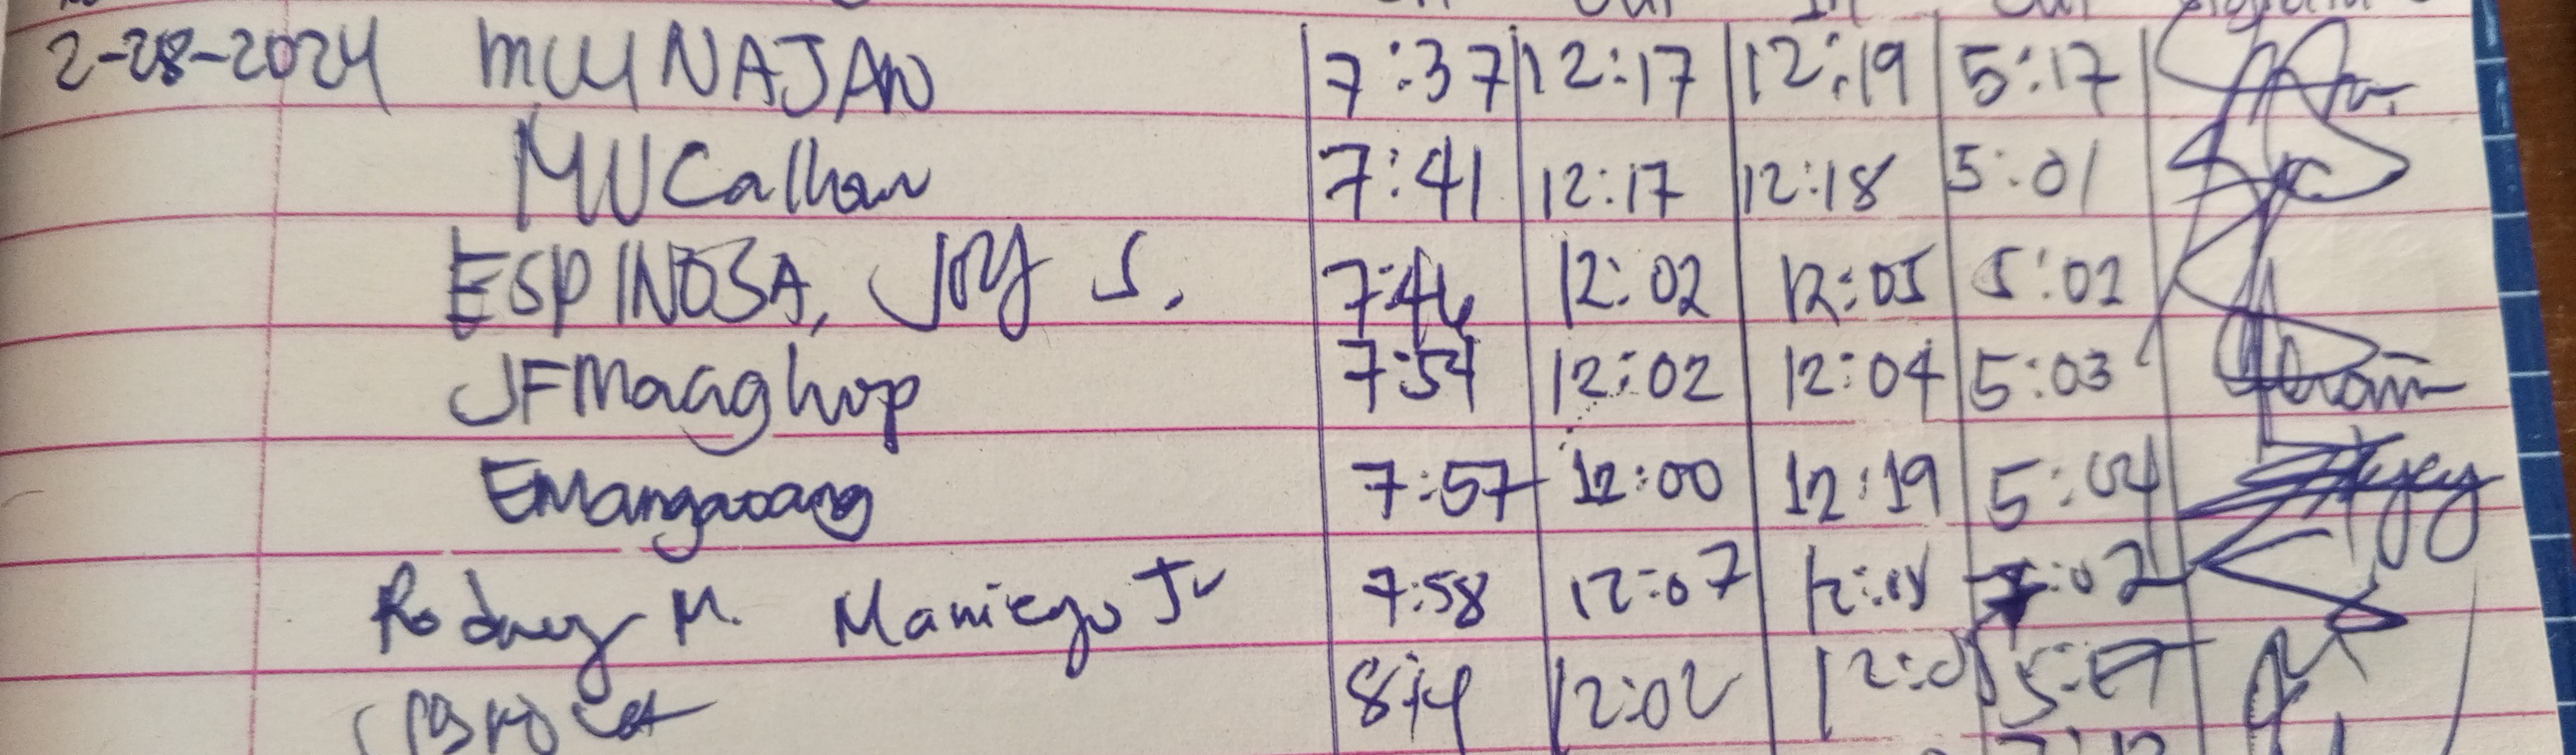 2-28-2024 MCUNAJAN 7:37 12:17 12:19 5:17
MUCalhan 7:41 12:17 12:18 5:01
ESPINOSA, JOY S. 7:46 12:02 12:05 5:02
JFMaaghop 7:54 12:02 12:04 5:03
EMangaoang 7:57 12:00 12:19 5:04
Rodney M. Maniego Jr 7:58 12:07 12:08 :02
8:14 12:02